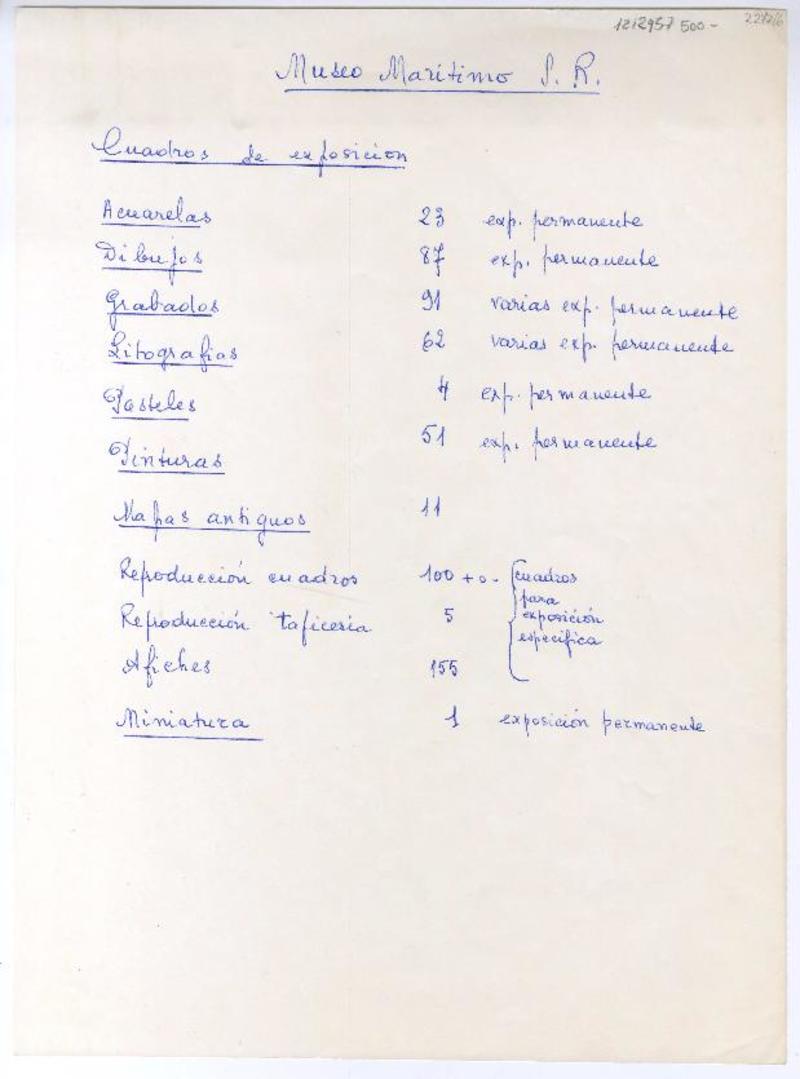 1212957 500-
Museo Marítimo S. R.
Cuadros de exposición
Acuarelas 23 exp. permanente
Dibujos 87 exp. permanente
Grabados 91 varias exp. permanente
Litografias 62 varias exp. permanente
Pasteles 4 exp. permanente
Pinturas 51 exp. permanente
Mapas antiguos 11
Reproducción cuadros 100 + o - cuadros
para
Reproducción tapiceria 5 exposición
especifica
Afiches 155
Miniatura 1 exposición permanente